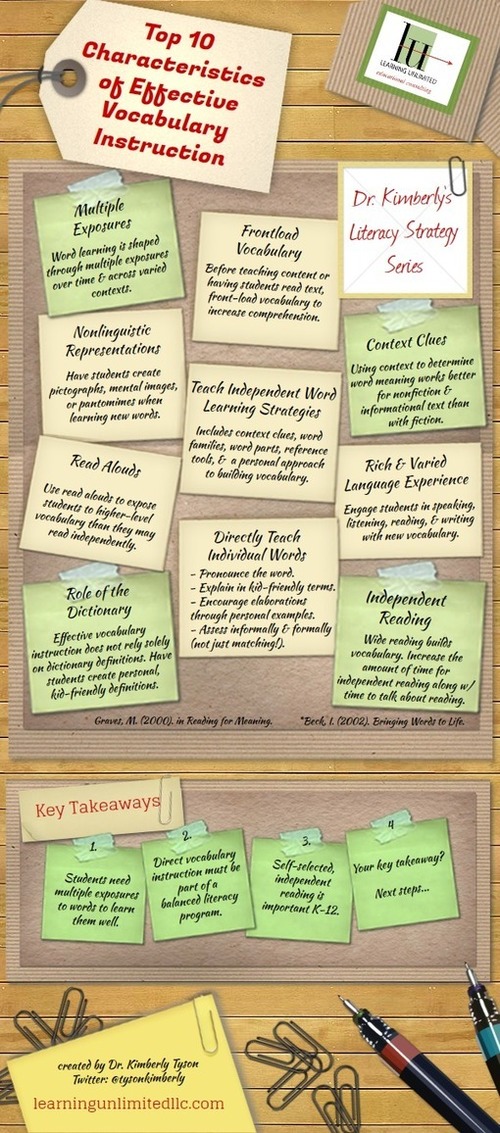 Top 10
Characteristics
of Effective
Vocabulary
Instruction
LU
LEARNING UNLIMITED
educational consulting
Dr. Kimberly's
Literacy Strategy
Series
Multiple
Exposures
Word learning is shaped
through multiple exposures
over time & across varied
contexts.
Frontload
Vocabulary
Before teaching content or
having students read text,
front-load vocabulary to
increase comprehension.
Nonlinguistic
Representations
Have students create
pictographs, mental images,
or pantomimes when
learning new words.
Teach Independent Word
Learning Strategies
Includes context clues, word
families, word parts, reference
tools, & a personal approach
to building vocabulary.
Context Clues
Using context to determine
word meaning works better
for nonfiction &
informational text than
with fiction.
Read Alouds
Use read alouds to expose
students to higher-level
vocabulary than they may
read independently.
Directly Teach
Individual Words
- Pronounce the word.
- Explain in kid-friendly terms.
- Encourage elaborations
through personal examples.
- Assess informally & formally
(not just matching!).
Rich & Varied
Language Experience
Engage students in speaking,
listening, reading, & writing
with new vocabulary.
Role of the
Dictionary
Effective vocabulary
instruction does not rely solely
on dictionary definitions. Have
students create personal,
kid-friendly definitions.
Independent
Reading
Wide reading builds
vocabulary. Increase the
amount of time for
independent reading along w/
time to talk about reading.
Graves, M. (2000). in Reading for Meaning.
*Beck, I. (2002). Bringing Words to Life.
Key Takeaways
1.
Students need
multiple exposures
to words to learn
them well.
2.
Direct vocabulary
instruction must be
part of a
balanced literacy
program.
3.
Self-selected,
independent
reading is
important K-12.
4
Your key takeaway?
Next steps...
created by Dr. Kimberly Tyson
Twitter: @tysonkimberly
learningunlimitedllc.com